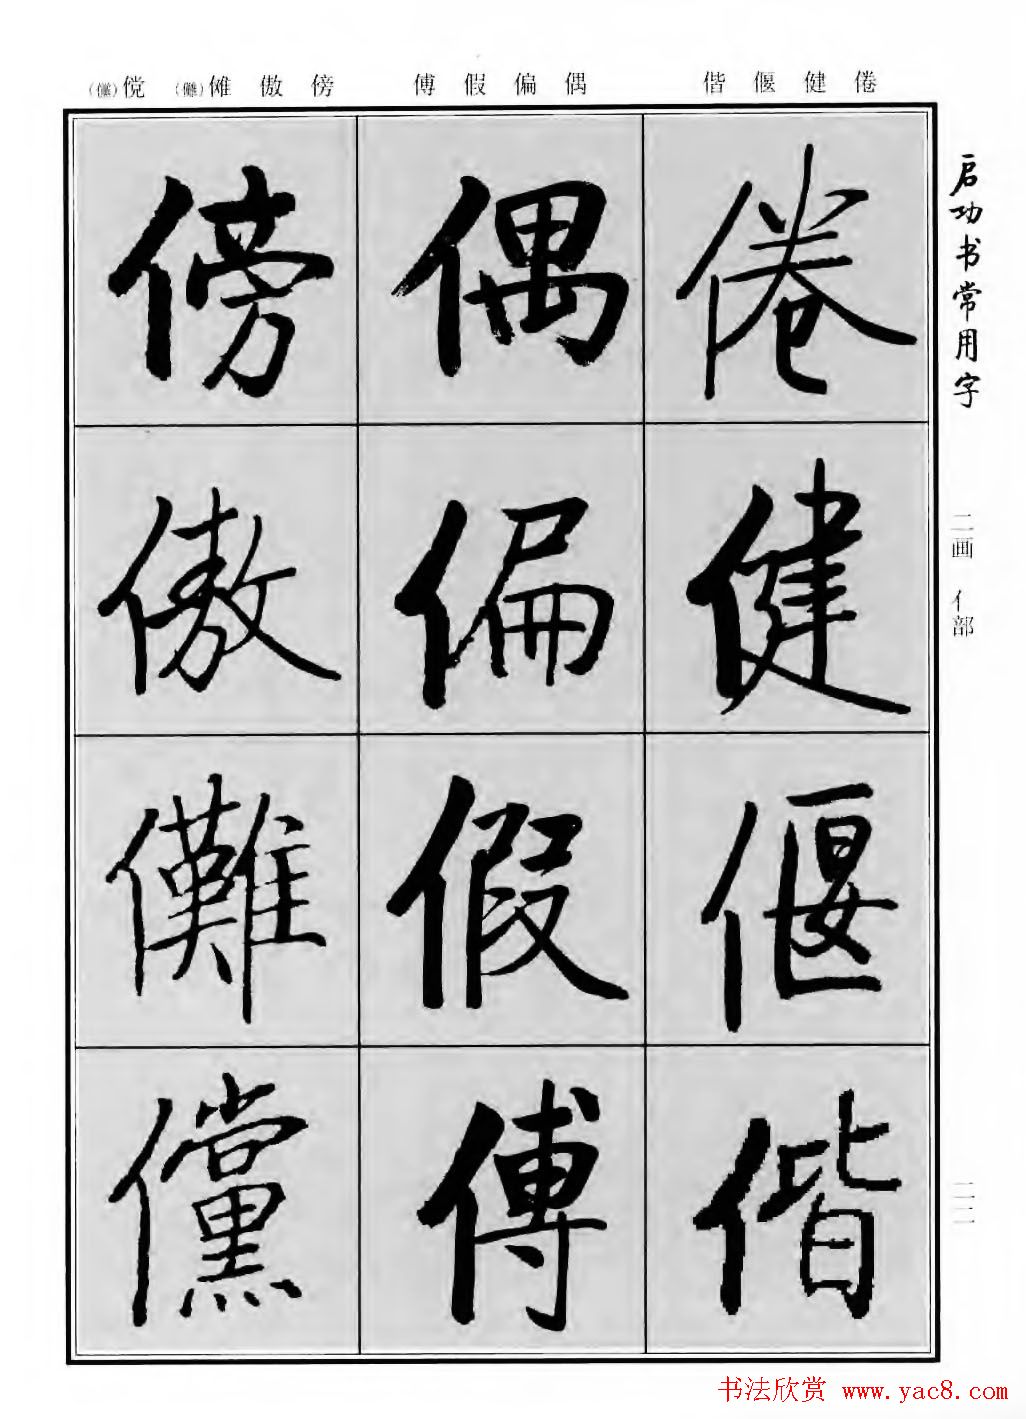 倦健偃偕 偶偏假傅 傍傲傩(儺)傥(儻)
启功书常用字
二画 亻部
倦
健
偃
偕
偶
偏
假
傅
傍
傲
儺
儻
书法欣赏 www.yac8.com